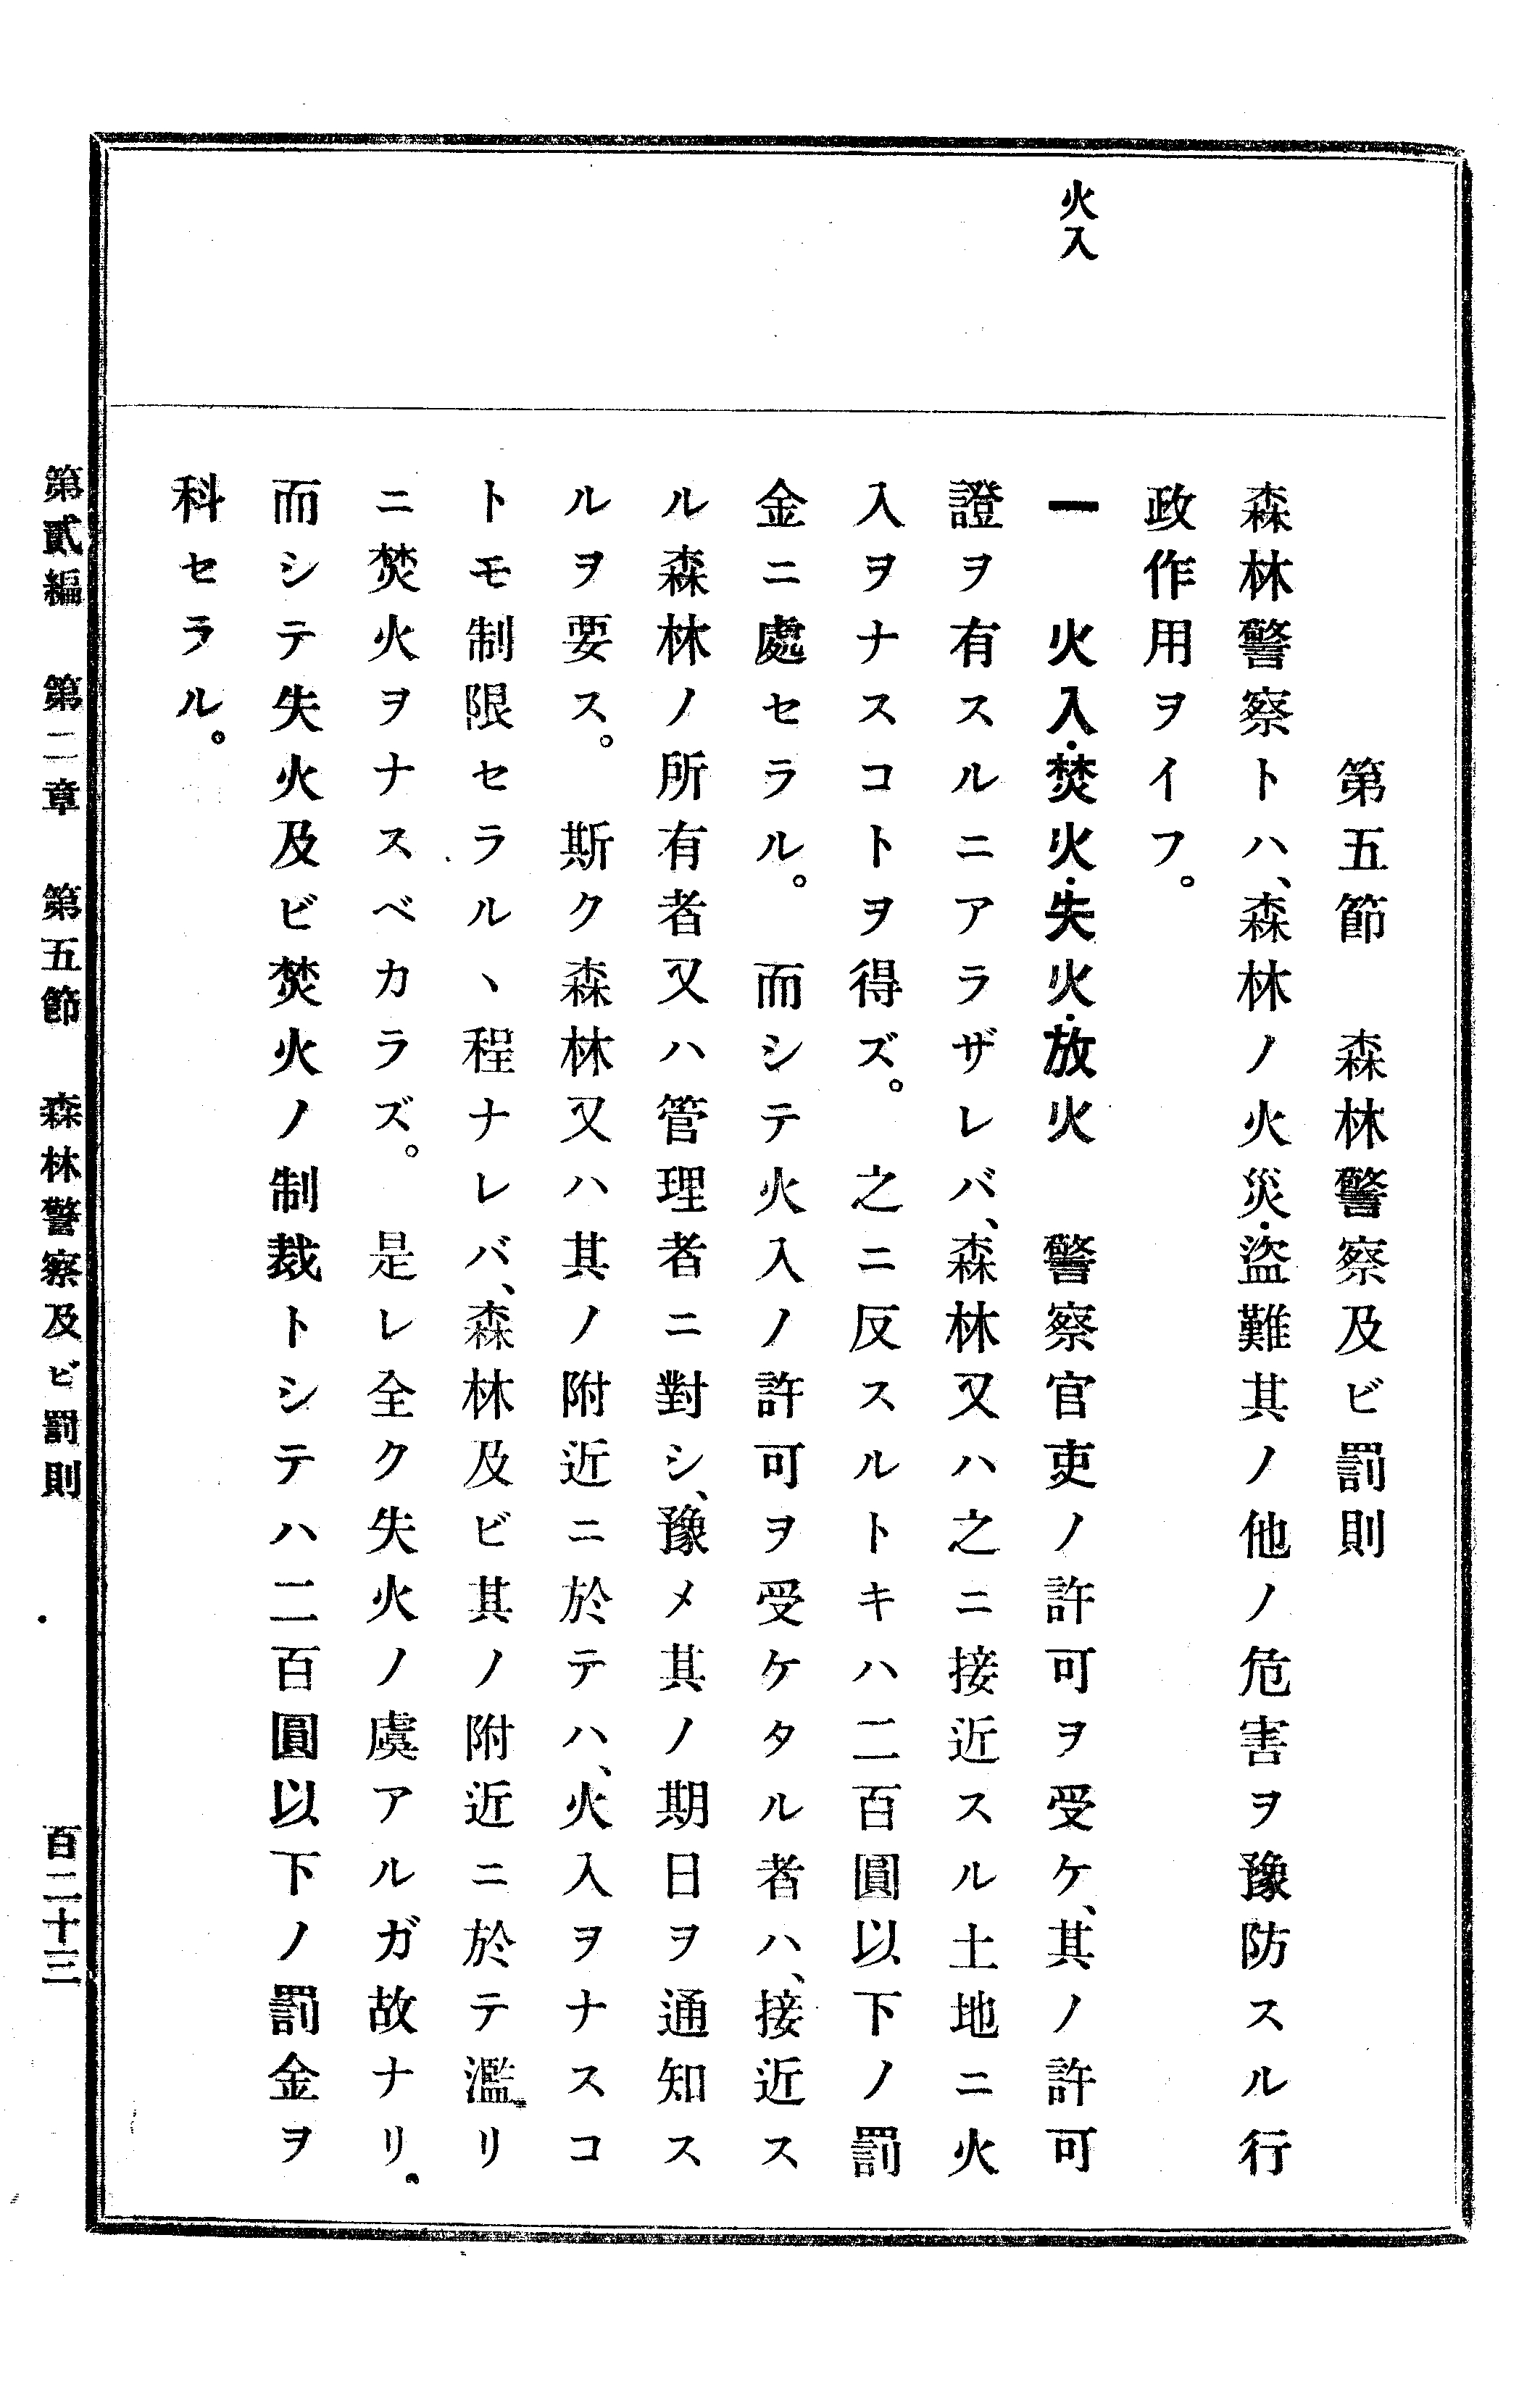 火入
第五節　森林警察及ビ罰則
森林警察トハ、森林ノ火災・盜難其ノ他ノ危害ヲ豫防スル行
政作用ヲイフ。
一　火入・焚火・失火・放火　警察官吏ノ許可ヲ受ケ、其ノ許可
證ヲ有スルニアラザレバ、森林又ハ之ニ接近スル土地ニ火
入ヲナスコトヲ得ズ。　之ニ反スルトキハ二百圓以下ノ罰
金ニ處セラル。　而シテ火入ノ許可ヲ受ケタル者ハ、接近ス
ル森林ノ所有者又ハ管理者ニ對シ、豫メ其ノ期日ヲ通知ス
ルヲ要ス。　斯ク森林又ハ其ノ附近ニ於テハ、火入ヲナスコ
トモ制限セラルヽ程ナレバ、森林及ビ其ノ附近ニ於テ濫リ
ニ焚火ヲナスベカラズ。　是レ全ク失火ノ虞アルガ故ナリ。
而シテ失火及ビ焚火ノ制裁トシテハ二百圓以下ノ罰金ヲ
科セラル。
第貳編　第二章　第五節　森林警察及ビ罰則　百二十三